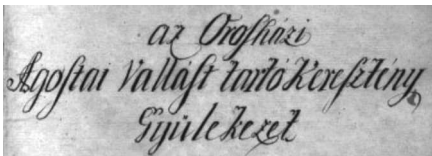 az Orosházi
Agostai Vallást tartó Keresztény
Gyülekezet